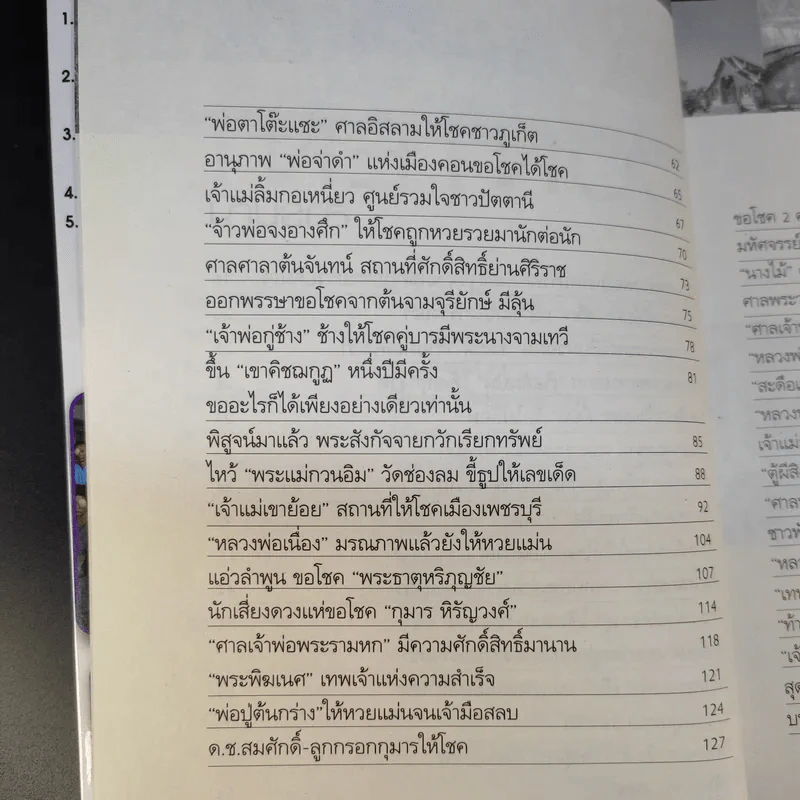 1.
2.
3.
4.
5.
“พ่อตาโต๊ะแซะ” ศาลอิสลามให้โชคชาวภูเก็ต 62
อานุภาพ “พ่อจ่าดำ” แห่งเมืองคอนขอโชคได้โชค 65
เจ้าแม่ลิ้มกอเหนี่ยว ศูนย์รวมใจชาวปัตตานี 67
“จ้าวพ่อจงอางศึก” ให้โชคถูกหวยรวยมานักต่อนัก 70
ศาลศาลาต้นจันทน์ สถานที่ศักดิ์สิทธิ์ย่านศิริราช 73
ออกพรรษาขอโชคจากต้นจามจุรียักษ์ มีลุ้น 75
“เจ้าพ่อกู่ช้าง” ช้างให้โชคคู่บารมีพระนางจามเทวี 78
ขึ้น “เขาคิชฌกูฏ” หนึ่งปีมีครั้ง 81
ขออะไรก็ได้เพียงอย่างเดียวเท่านั้น
พิสูจน์มาแล้ว พระสังกัจจายกวักเรียกทรัพย์ 85
ไหว้ “พระแม่กวนอิม” วัดช่องลม ขี้ธูปให้เลขเด็ด 88
“เจ้าแม่เขาย้อย” สถานที่ให้โชคเมืองเพชรบุรี 92
“หลวงพ่อเนื่อง” มรณภาพแล้วยังให้หวยแม่น 104
แอ่วลำพูน ขอโชค “พระธาตุหริภุญชัย” 107
นักเสี่ยงดวงแห่ขอโชค “กุมาร หิรัญวงศ์” 114
“ศาลเจ้าพ่อพระรามหก” มีความศักดิ์สิทธิ์มานาน 118
“พระพิฆเนศ” เทพเจ้าแห่งความสำเร็จ 121
“พ่อปู่ต้นกร่าง”ให้หวยแม่นจนเจ้ามือสลบ 124
ด.ช.สมศักดิ์-ลูกกรอกกุมารให้โชค 127
ขอโชค 2
มหัศจรรย์
“นางไม้”
ศาลพระ
“ศาลเจ้า
“หลวงพ่
“สะดือ
“หลวง
เจ้าแม่
“ตู้ผีสิ
“ศาล
ชาวพั
“หล
“เทพ
“ท้า
“เจ้
สุด
บท